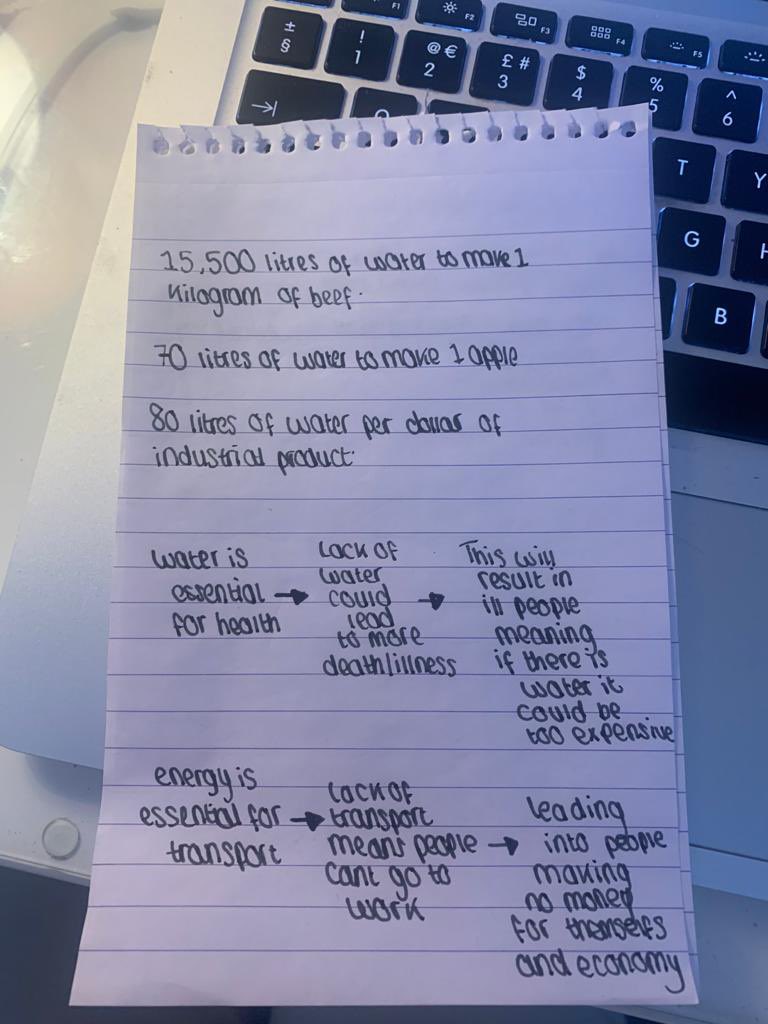 ± § ! 1 @ € 2 £ # 3 $ 4 % 5 ^ 6
F1 F2 F3 F4 F5
T Y
G
B
15,500 litres of water to make 1
kilogram of beef.
70 litres of water to make 1 apple
80 litres of water per dollar of
industrial product.
water is
essential
for health
Lack of
water
could
lead
to more
death/illness
This will
result in
ill people
meaning
if there is
water it
could be
too expensive
energy is
essential for
transport
Lack of
transport
means people
cant go to
work
leading
into people
making
no money
for themselfs
and economy